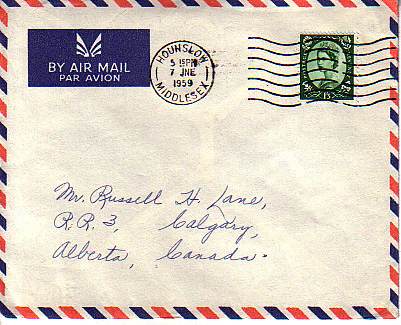 BY AIR MAIL
PAR AVION
HOUNSLOW
5 15PM
7 JNE
1959
MIDDLESEX
Mr. Russell H. Lane,
R.R. 3, Calgary,
Alberta, Canada.